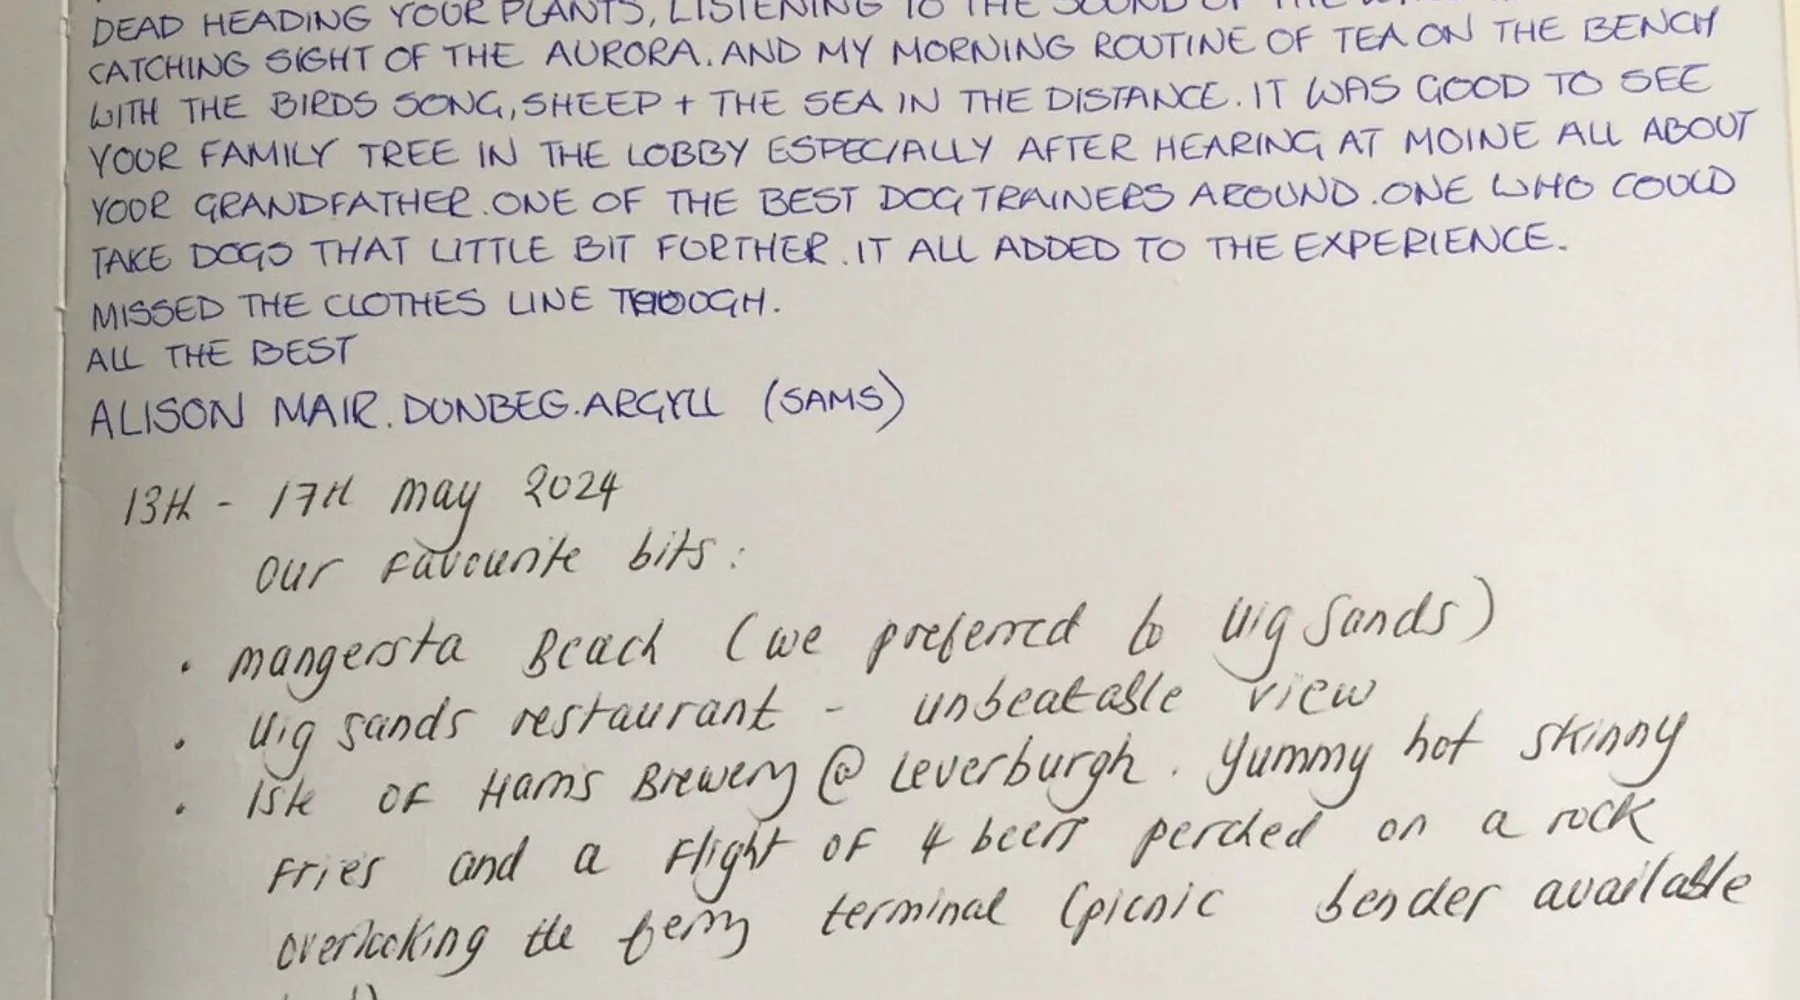 DEAD HEADING YOUR PLANTS, LISTENING TO THE SOUND OF THE
CATCHING SIGHT OF THE AURORA. AND MY MORNING ROUTINE OF TEA ON THE BENCH
WITH THE BIRDS SONG, SHEEP + THE SEA IN THE DISTANCE. IT WAS GOOD TO SEE
YOUR FAMILY TREE IN THE LOBBY ESPECIALLY AFTER HEARING AT MOINE ALL ABOUT
YOUR GRANDFATHER. ONE OF THE BEST DOG TRAINERS AROUND. ONE WHO COULD
TAKE DOGS THAT LITTLE BIT FURTHER. IT ALL ADDED TO THE EXPERIENCE.
MISSED THE CLOTHES LINE THOUGH.
ALL THE BEST
ALISON MAIR. DUNBEG. ARGYLL (SAMS)
13TH - 17TH May 2024
Our favourite bits:
• Mangersta Beach (we preferred to Uig Sands)
• Uig Sands restaurant - unbeatable view
• Isle of Harris Brewery @ Leverburgh. Yummy hot skinny
fries and a flight of 4 beers perched on a rock
overlooking the ferry terminal (picnic bender available